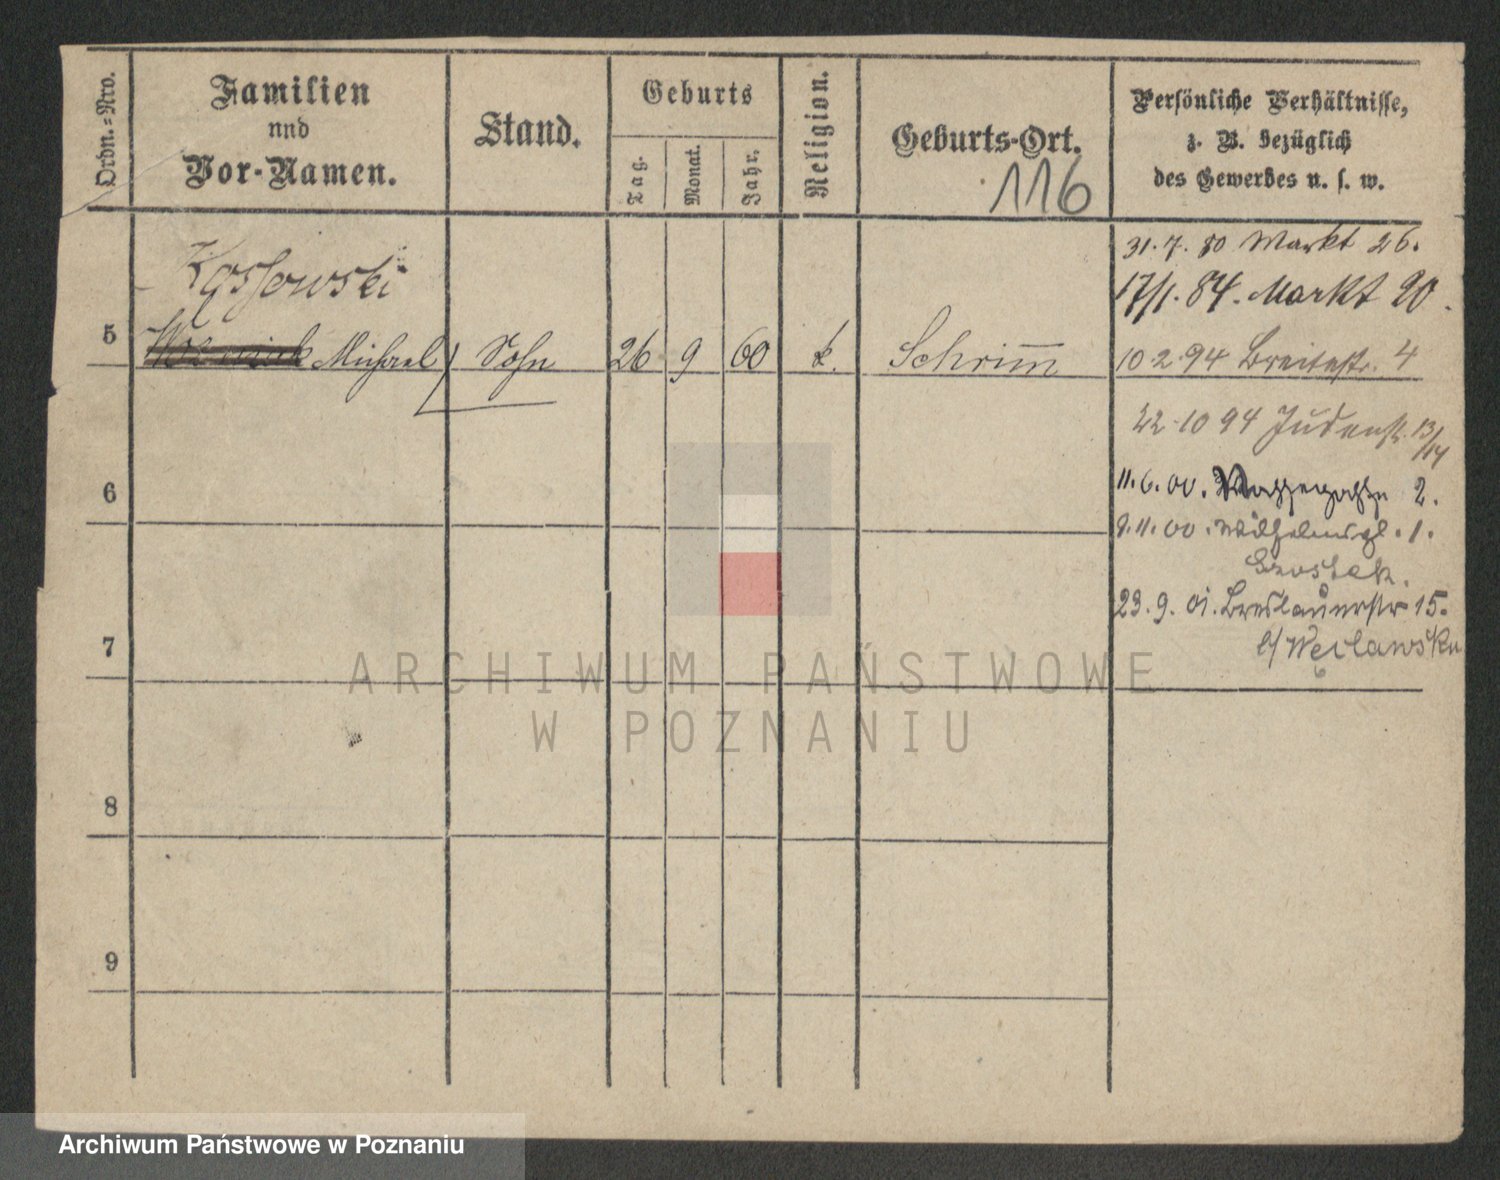 Ordn.=Nro.
Familien
nnd
Vor-Namen.
Stand.
Geburts
Tag.
Monat.
Jahr.
Religion.
Geburts-Ort.
116
Persönliche Verhältnisse,
z. B. bezüglich
des Gewerbes u. s. w.
31. 7. 80 Markt 26.
17/1. 84. Markt 90.
Kossowski
5 Michael Sohn 26 9 60 k. Schrimm
10.2.94 Breitestr. 4
22-10 94 Judenstr. 13/14
6
11. 6. 00. 2.
9. 11. 00. Wilhelmspl. 1.
23. 9. 01. Breslauerstr 15.
b/
7
ARCHIWUM PAŃSTWOWE
W POZNANIU
8
9
Archiwum Państwowe w Poznaniu